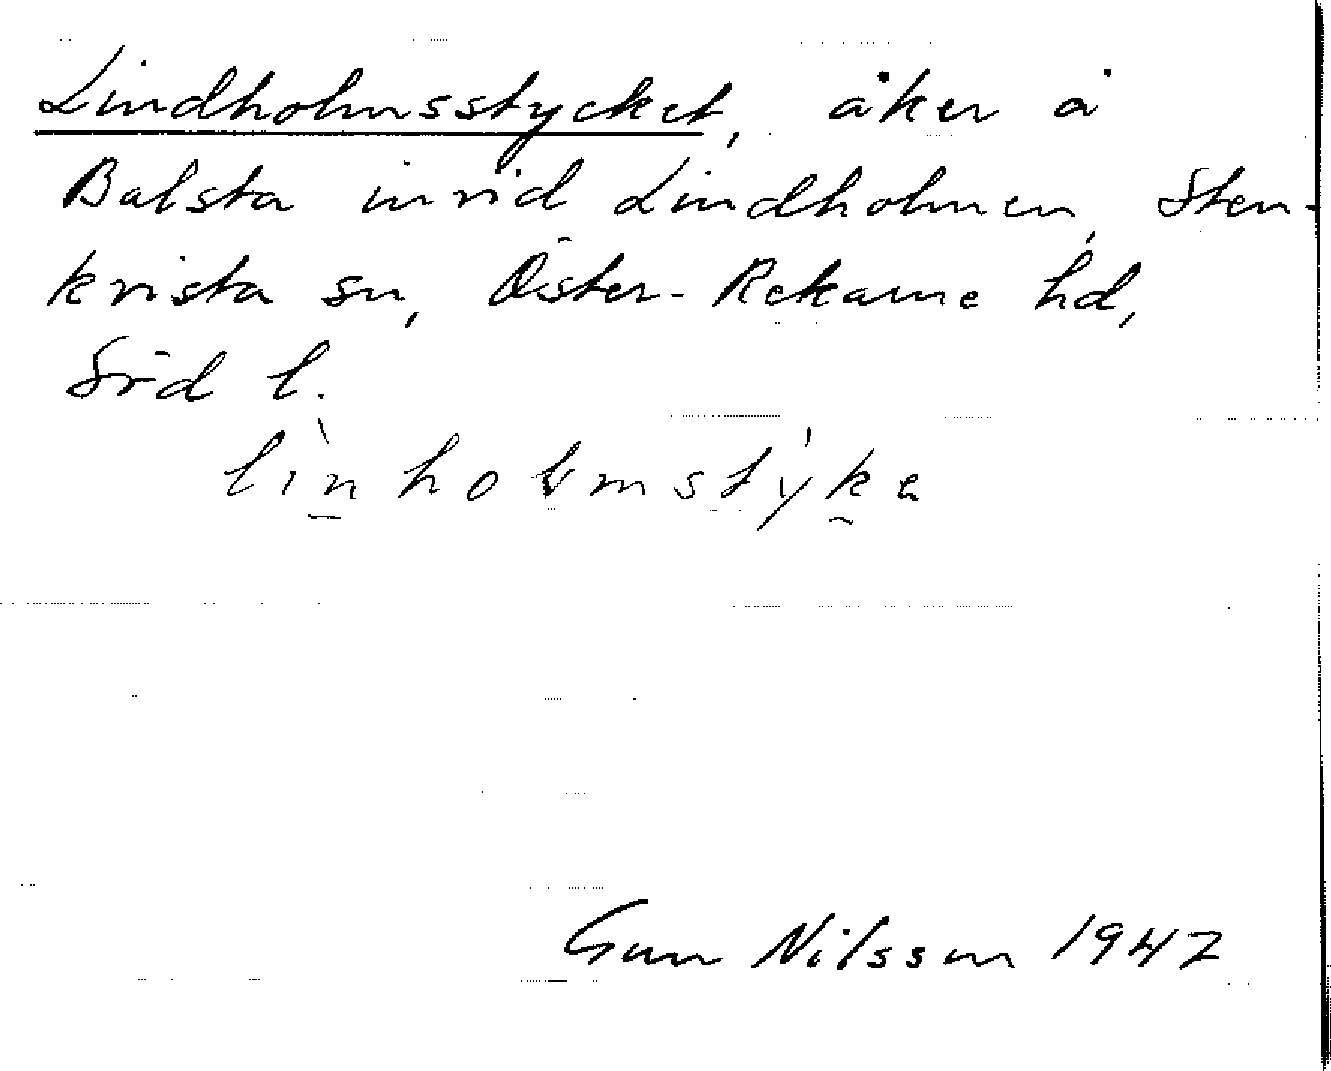 Lindholmsstycket, åker å
Balsta invid Lindholmen, Sten-
kvista sn, Öster-Rekarne hd,
Söd l.
lìnholmstýka
Gun Nilsson 1947